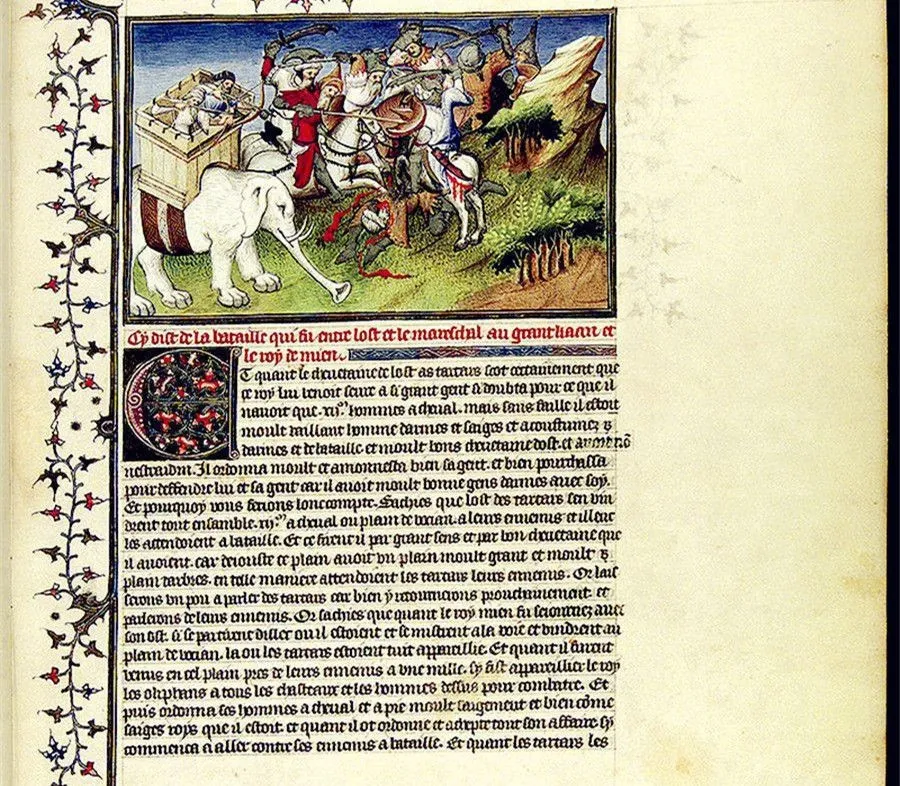 Cy dist de la bataille qui fu entre lost et le mareschal au grant kaan et
le roy de mien.
Et quant le cheuetaine de lost as tartars scot certainement que
ce roy lui venoit seure a si grant gent si doubta pour ce que il
nauoit que .xii.m hommes a cheual. mais sans faille il estoit
moult vaillant homme darmes et saiges et acoustumez
darmes et de bataille et moult bons cheuetaine dost. et
Il ordonna moult et amonnesta bien sa gent. et bien pourchassa
pour deffendre lui et sa gent car il auoit moult bonne gens darmes auec soy.
Et pourquoy vous feroions lonc compte. Sachies que lost des tartars sen vin
drent tout ensamble .xii.m a cheual ou plain de vocian. a leurs ennemis et illec
les attendoient a bataille. Et ce firent il par grant sens et par bon cheuetaine que
il auoient. car deiouste ce plain auoit vn plain moult grant et moult
plain darbres. en telle maniere attendoient les tartars leurs ennemis. Or lais
serons vn pou a parler des tartars car bien y retournerons prouchainement. et
parlerons de leurs ennemis. Or sachies que quant le roy mien fu seiournez auec
son ost. si se partirent dillec ou il estoient et se mistrent a la voie et vindrent au
plain de vocian. la ou les tartars estoient tuit appareillie. Et quant il furent
venus en cel plain pres de leurs ennemis a vne mille. sy fist appareillier le roy
les oliphans a tous les chasteaux et les hommes dessus pour combatre. Et
puis ordonna ses hommes a cheual et a pie moult saigement et bien come
saiges roys que il estoit. et quant il ot ordonne et adrepte tout son affaire sy
commenca a aller contre ses ennemis a bataille. Et quant les tartars les